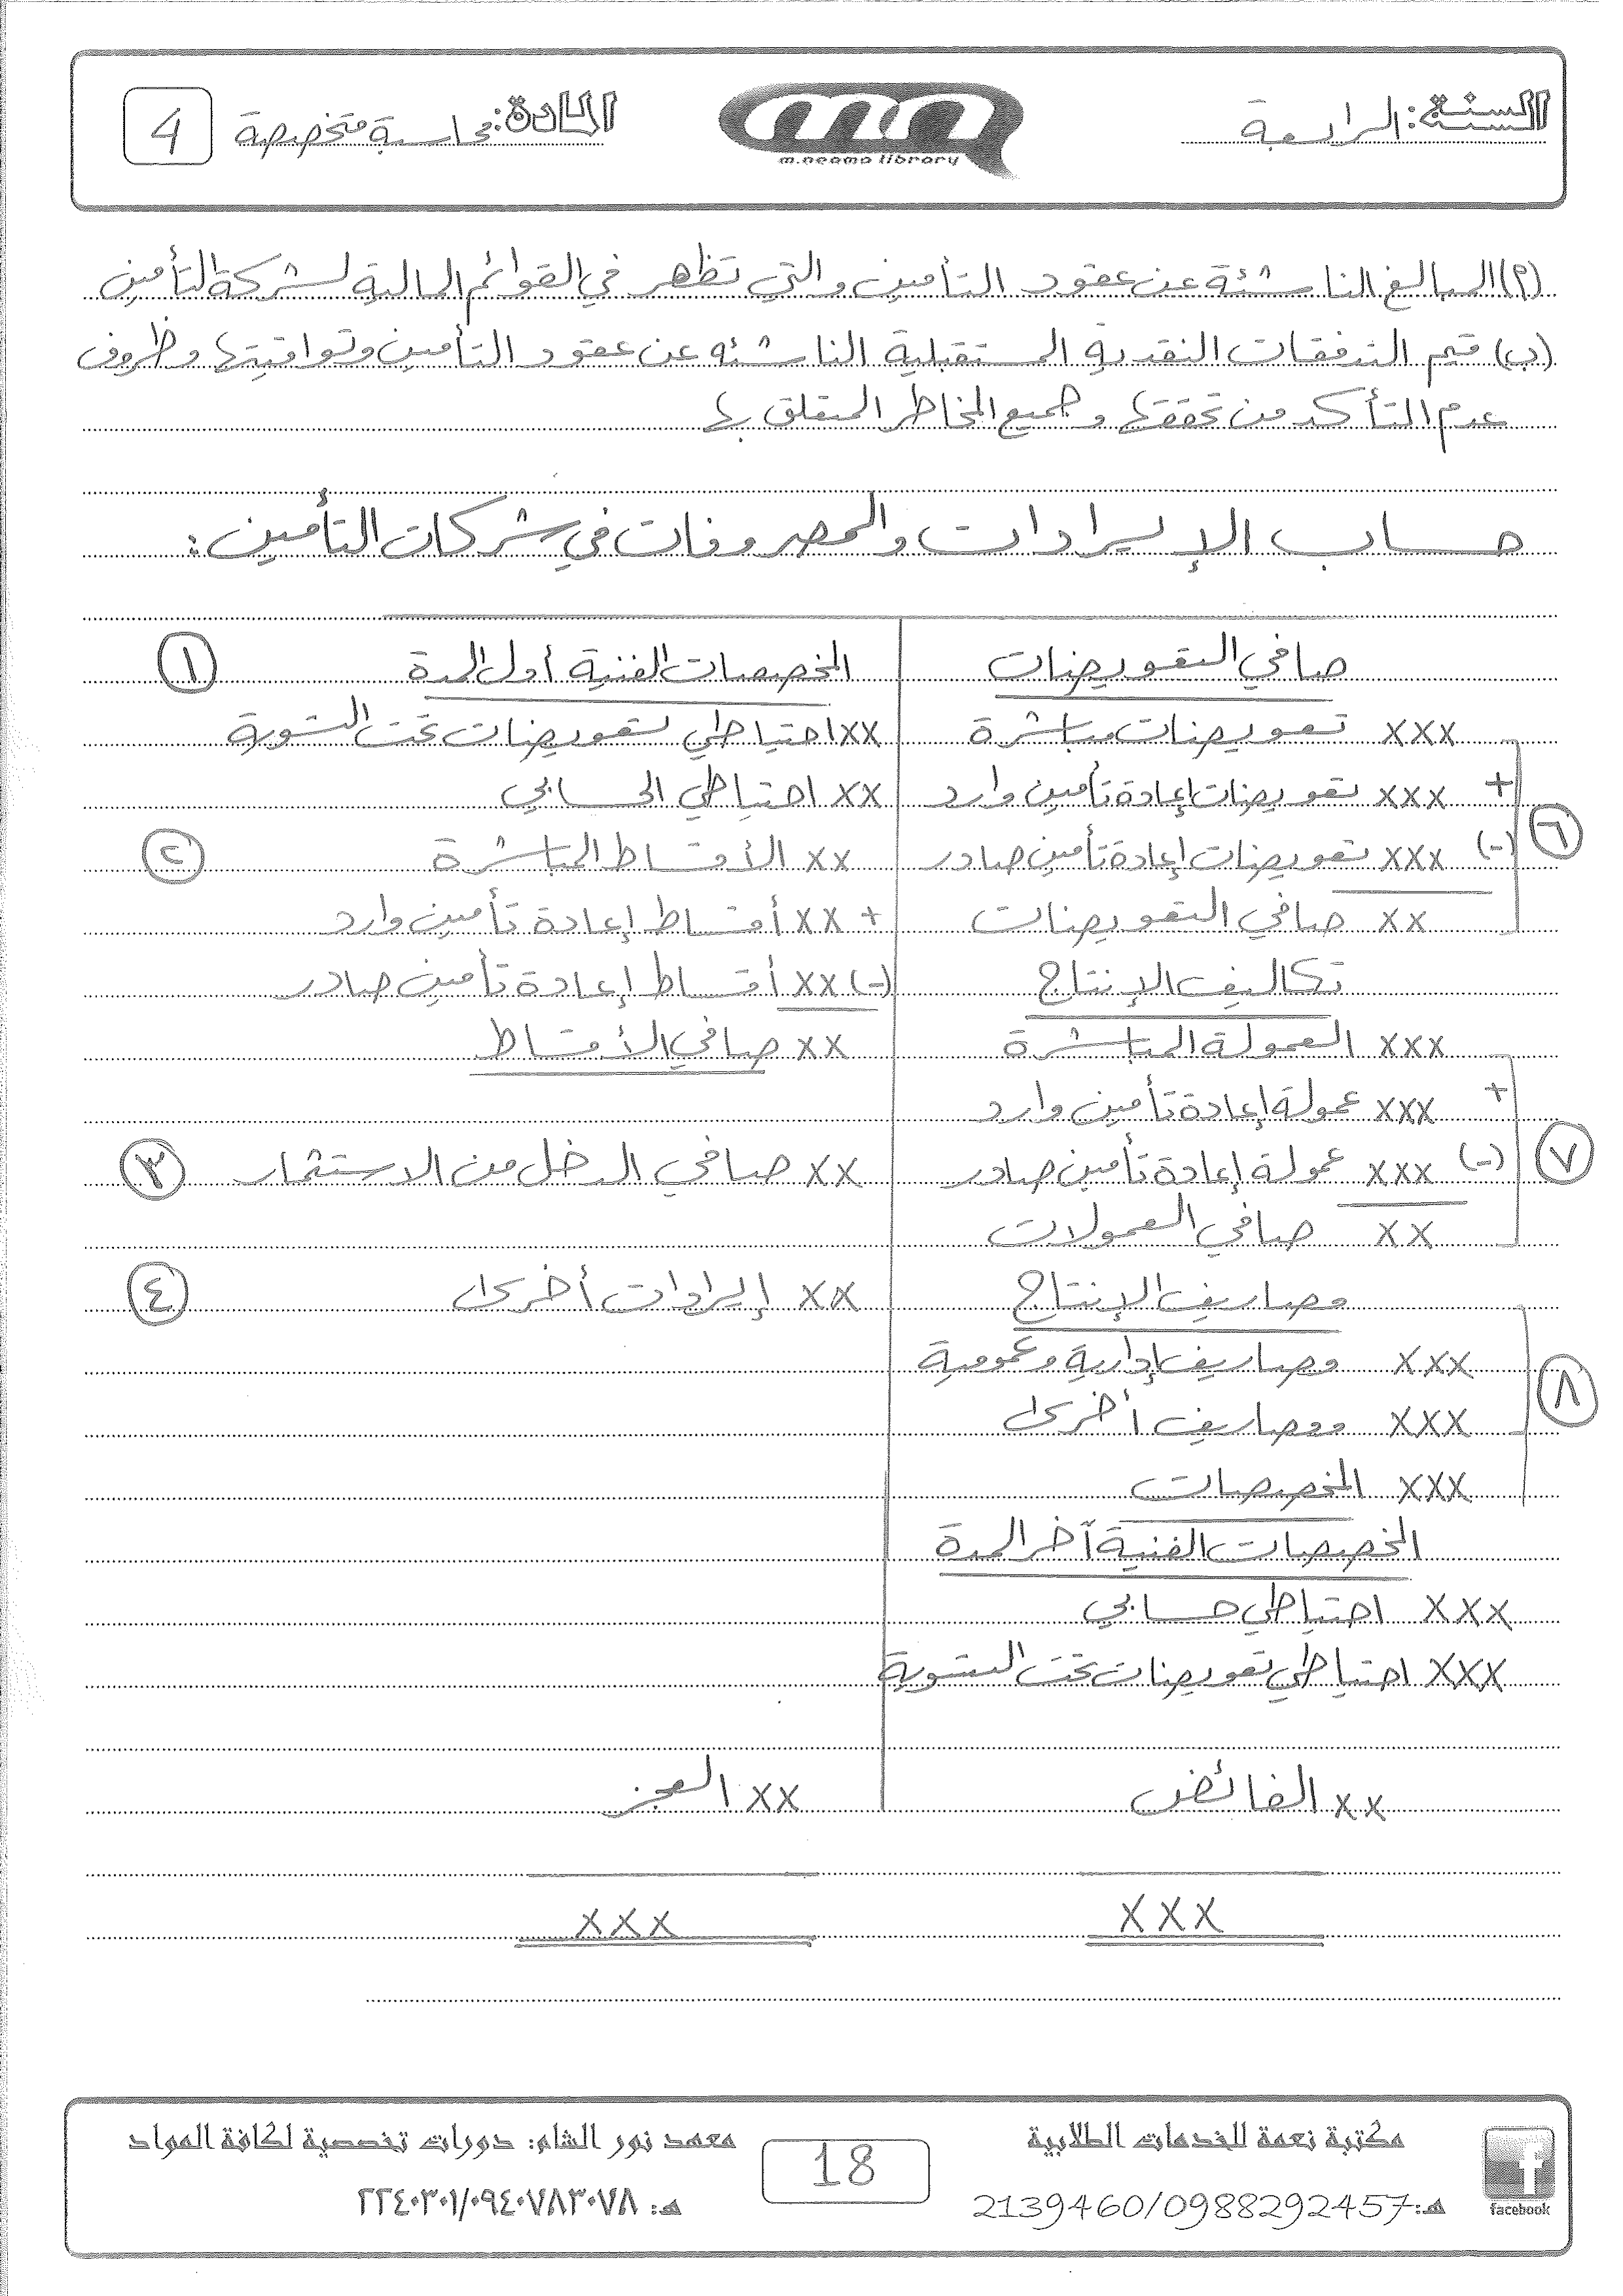 السنة: الرابعة
m.neama library
المادة: محاسبة متخصصة
4
(أ) المبالغ الناشئة عن عقود التأمين والتي تظهر في القوائم المالية لشركة التأمين
(ب) قيم التدفقات النقدية المستقبلية الناشئه عن عقود التأمين وتواقيتها وظروف
عدم التأكد من تحققها وجميع المخاطر المتعلق بها
حساب الإيرادات والمصروفات في شركات التأمين:
صافي التعويضات المخصصات الفنية أول المدة ١
xxx تعويضات مباشرة xx احتياطي تعويضات تحت التسوية
+ xxx تعويضات إعادة تأمين وارد xx احتياطي الحسابي
٦ (-) xxx تعويضات إعادة تأمين صادر xx الأقساط المباشرة ٢
xx صافي التعويضات + xx أقساط إعادة تأمين وارد
تكاليف الإنتاج (-) xx أقساط إعادة تأمين صادر
xxx العمولة المباشرة xx صافي الأقساط
+ xxx عمولة إعادة تأمين وارد
٧ (-) xxx عمولة إعادة تأمين صادر xx صافي الدخل من الاستثمار ٣
xx صافي العمولات
مصاريف الإنتاج xx إيرادات أخرى ٤
xxx مصاريف إدارية وعمومية
٨ xxx ومصاريف أخرى
xxx المخصصات
المخصصات الفنية آخر المدة
xxx احتياطي حسابي
xxx احتياطي تعويضات تحت التسوية
xx الفائض xx العجز
xxx xxx
مكتبة نعمة للخدمات الطلابية
هـ: 2139460/0988292457
facebook
18
معهد نور الشام: دورات تخصصية لكافة المواد
هـ: ٢٢٤٠٣٠١/٠٩٤٠٧٨٣٠٧٨